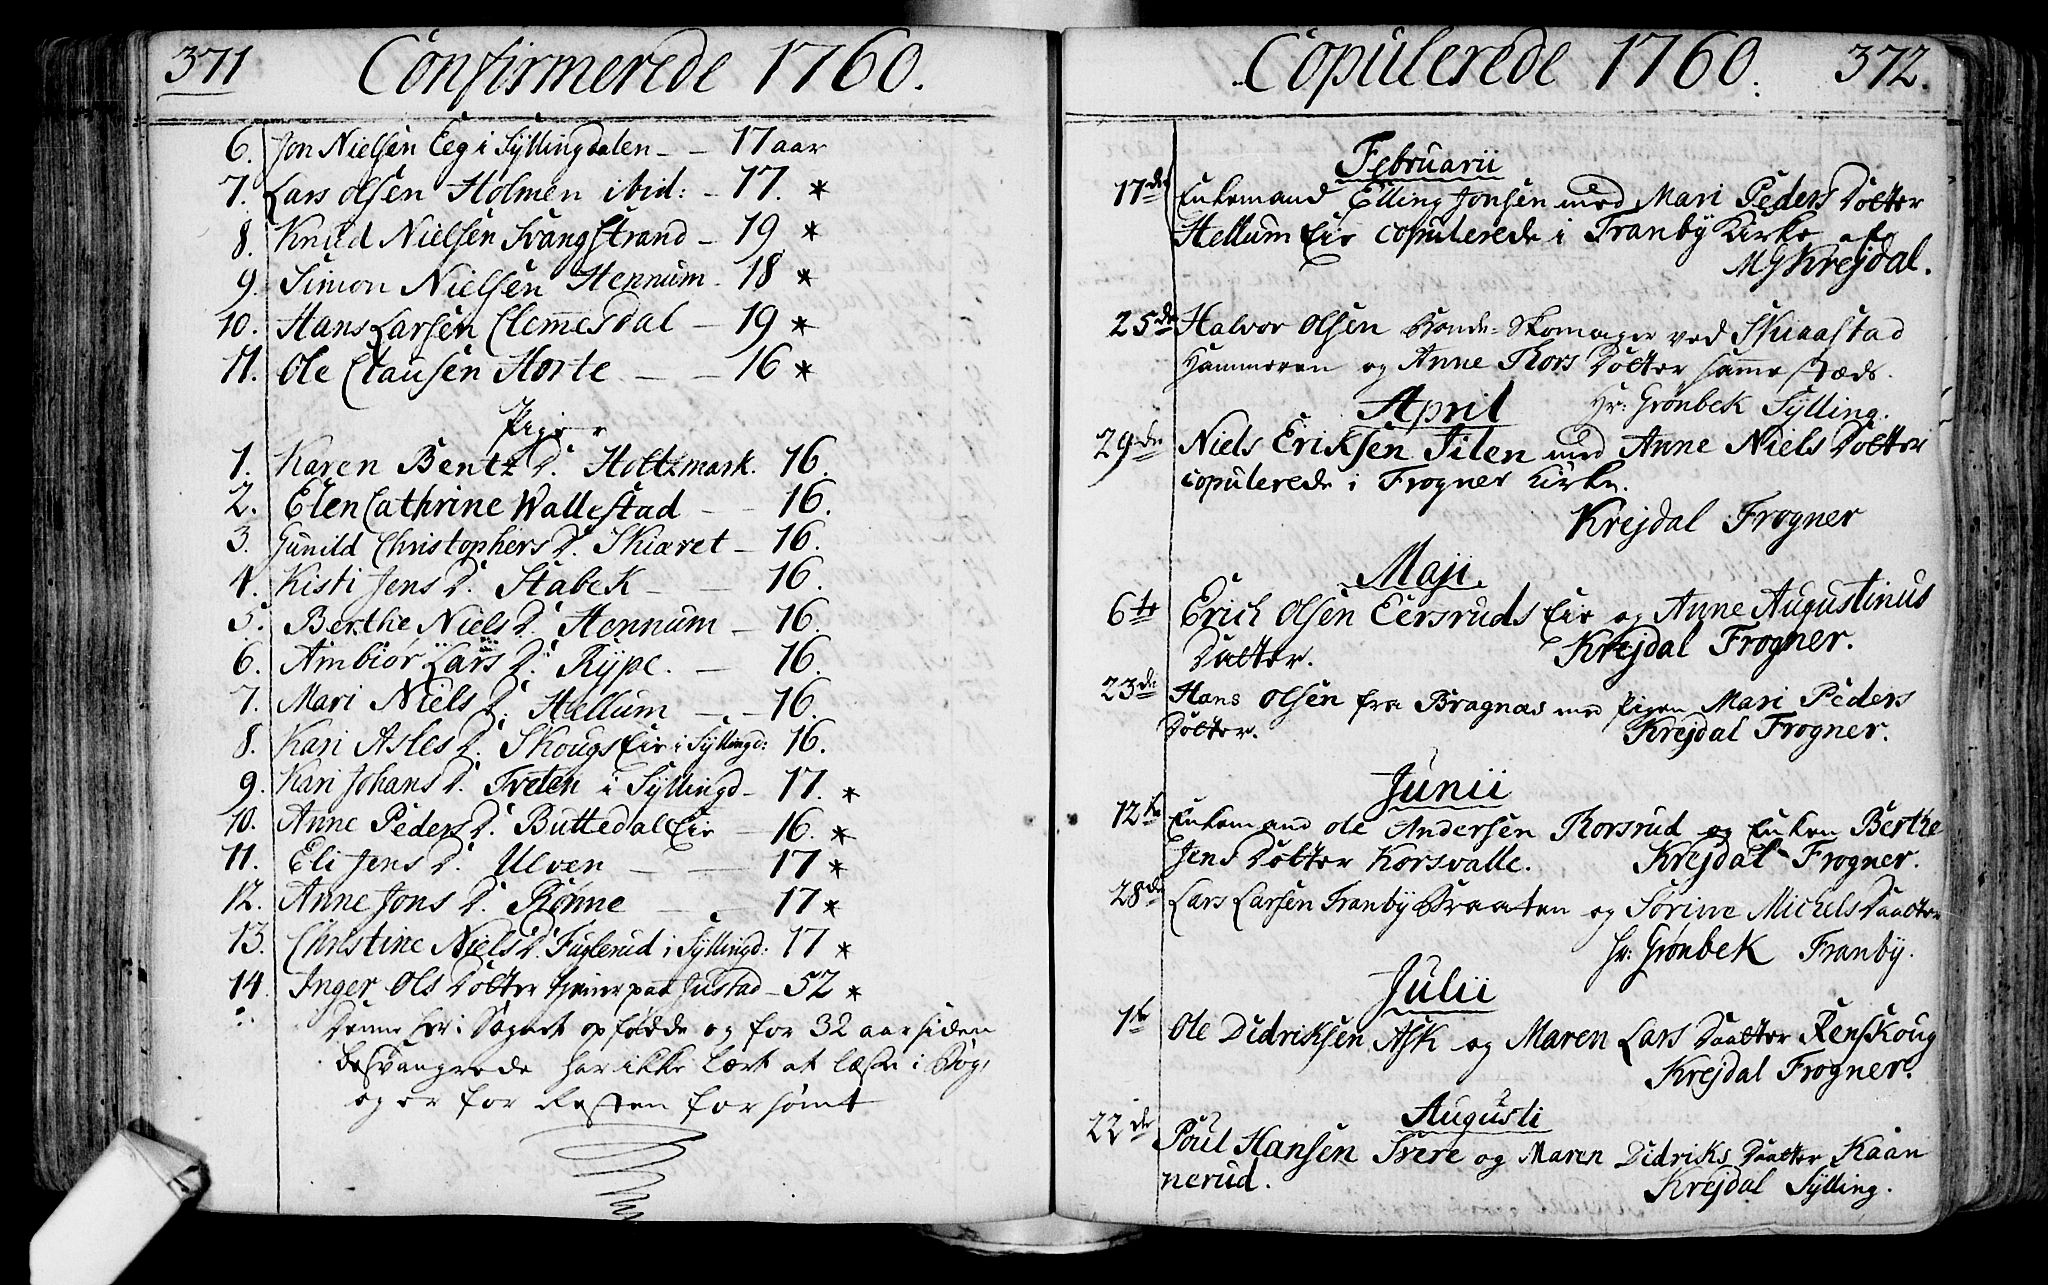 371 Confirmerede 1760.
6. Jon Nielsen Eeg i Syllingdalen - - 17 aar
7. Lars Olsen Holmen ibid: - 17. *
8. Knud Nielsen Svangstrand - 19 *
9. Simon Nielsen Hennum - 18 *
10. Hans Larsen Clemmesdal - 19 *
11. Ole Clausen Horte - - 16 *
Piger
1. Karen Bentz D. Holtzmark. 16.
2. Elen Cathrine Wallestad - - 16.
3. Gunild Christophers D. Skiæret - 16.
4. Kisti Jens D. Stabek - - 16.
5. Berthe Niels D. Hennum - 16.
6. Ambiør Lars D. Rype. - 16.
7. Mari Niels D. Hellum - - 16.
8. Kari Asles D. Skougs Eie i Syllingd: 16.
9. Kari Johans D. Tveten i Syllingd - 17. *
10. Anne Peders D. Buttedal Eie - 16. *
11. Eli Jens D. Ulven - - 17 *
12. Anne Jons D. Rønne - - 17 *
13. Christine Niels D. Fuglerud i Syllingd: 17 *
14. Inger Ols Dotter tjener paa Justad - 52 *
Denne her i Sognet opfødde og for 32 aar siden
besvangrede har ikke lært at læse i Bog,
og er for Resten forsømt
Copulerede 1760. 372.
Februarii
17de Enkemand Elling Jonsen med Mari Peders Dotter
Hellum Eie copulerede i Tranby Kirke af
MG Krejdal.
25de Halvor Olsen Bonde-Skomager ved Skiaastad
Hammeren og Anne Thors Dotter samme stæds.
Hr: Grønbek Sylling.
April
29de Niels Eriksen Tilen med Anne Niels Dotter
copulerede i Frogner Kirke.
Krejdal Frogner
Maji.
6te Erich Olsen Eersruds Eie og Anne Augustinus
Datter. Krejdal Frogner.
23de Hans Olsen fra Bragnæs med Pigen Mari Peders
Dotter. Krejdal Frogner.
Junii
12te Enkemand Ole Andersen Korsrud og Enken Berthe
Jens Dotter Korsvalle. Krejdal Frogner.
28de Lars Larsen Tranby Braaten og Sørine Michels Daatter
Hr: Grønbek Tranby.
Julii
1te Ole Didriksen Ask og Maren Lars Daatter Renskoug
Krejdal Frogner.
Augusti
22de Poul Hansen Tvere og Maren Didriks Daatter Kaan
nerud. Krejdal Sylling.